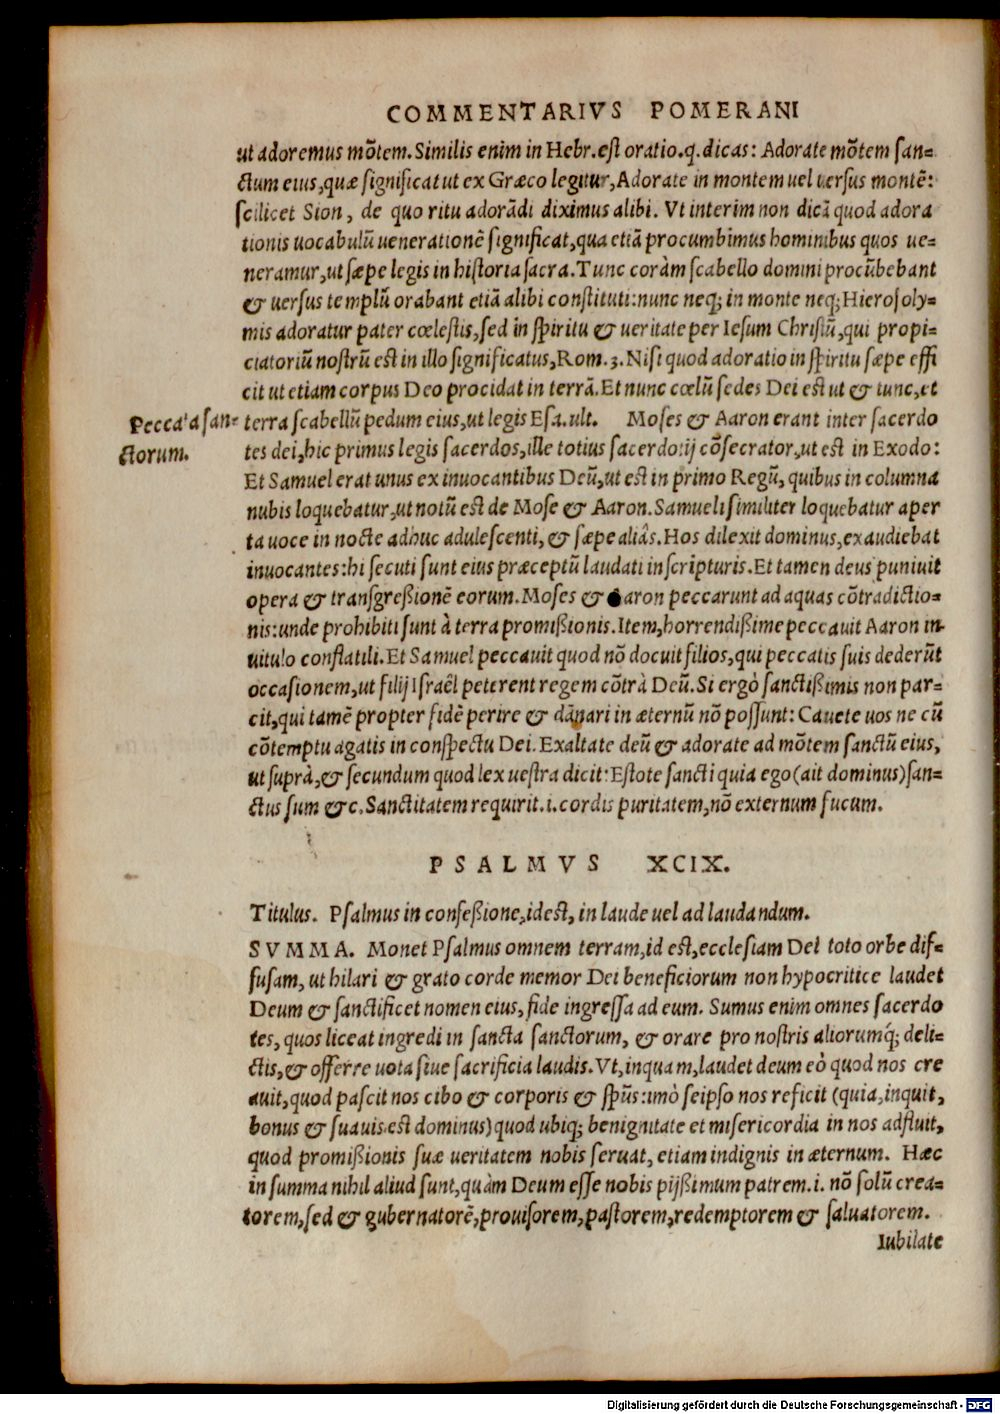 COMMENTARIVS POMERANI
ut adoremus mõtem. Similis enim in Hebr. est oratio. q. dicas: Adorate mõtem san=
ctum eius, quæ significat ut ex Græco legitur, Adorate in montem uel uersus montẽ:
scilicet Sion, de quo ritu adorãdi diximus alibi. Vt interim non dicã quod adora
tionis uocabulũ uenerationẽ significat, qua etiã procumbimus hominibus quos ue=
neramur, ut sæpe legis in historia sacra. Tunc coràm scabello domini procũbebant
& uersus templũ orabant etiã alibi constituti: nunc neq; in monte neq; Hierosoly=
mis adoratur pater cœlestis, sed in spiritu & ueritate per Iesum Christũ, qui propi=
ciatoriũ nostrũ est in illo significatus, Rom. 3. Nisi quod adoratio in spiritu sæpe effi
cit ut etiam corpus Deo procidat in terrã. Et nunc cœlũ sedes Dei est ut & tunc, et
terra scabellũ pedum eius, ut legis Esa. ult. Moses & Aaron erant inter sacerdo
Peccata san=
ctorum.
tes dei, hic primus legis sacerdos, ille totius sacerdotij cõsecrator, ut est in Exodo:
Et Samuel erat unus ex inuocantibus Deũ, ut est in primo Regũ, quibus in columna
nubis loquebatur, ut notũ est de Mose & Aaron. Samueli similiter loquebatur aper
ta uoce in nocte adhuc adulescenti, & sæpe aliâs. Hos dilexit dominus, exaudiebat
inuocantes: hi secuti sunt eius præceptũ laudati in scripturis. Et tamen deus puniuit
opera & transgreßionẽ eorum. Moses & Aaron peccarunt ad aquas cõtradictio=
nis: unde prohibiti sunt à terra promißionis. Item, horrendißime peccauit Aaron in
uitulo conflatili. Et Samuel peccauit quod nõ docuit filios, qui peccatis suis dederũt
occasionem, ut filij Israêl peterent regem cõtrà Deũ. Si ergò sanctißimis non par=
cit, qui tamẽ propter fidẽ perire & dãnari in æternũ nõ possunt: Cauete uos ne cũ
cõtemptu agatis in conspectu Dei. Exaltate deũ & adorate ad mõtem sanctũ eius,
ut suprà, & secundum quod lex uestra dicit: Estote sancti quia ego (ait dominus) san=
ctus sum &c. Sanctitatem requirit. i. cordis puritatem, nõ externum fucum.
PSALMVS XCIX.
Titulus. Psalmus in confeßione, id est, in laude uel ad laudandum.
SVMMA. Monet Psalmus omnem terram, id est, ecclesiam Dei toto orbe dif=
fusam, ut hilari & grato corde memor Dei beneficiorum non hypocritice laudet
Deum & sanctificet nomen eius, fide ingressa ad eum. Sumus enim omnes sacerdo
tes, quos liceat ingredi in sancta sanctorum, & orare pro nostris aliorumq́; deli=
ctis, & offerre uota siue sacrificia laudis. Vt, inquam, laudet deum eò quod nos cre
auit, quod pascit nos cibo & corporis & spũs: imò seipso nos reficit (quia, inquit,
bonus & suauis est dominus) quod ubiq; benignitate et misericordia in nos adfluit,
quod promißionis suæ ueritatem nobis seruat, etiam indignis in æternum. Hæc
in summa nihil aliud sunt, quàm Deum esse nobis pijßimum patrem. i. nõ solũ crea=
torem, sed & gubernatorẽ, prouisorem, pastorem, redemptorem & saluatorem.
Iubilate
Digitalisierung gefördert durch die Deutsche Forschungsgemeinschaft - DFG